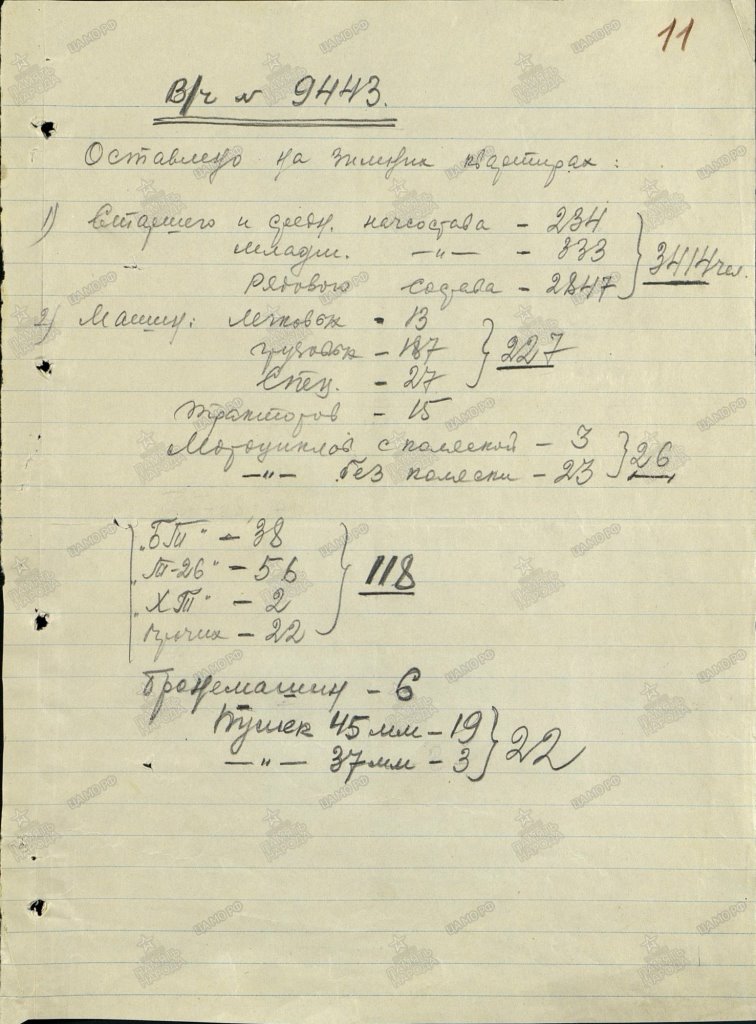 11
В/ч № 9443.
Оставлено на зимних квартирах:
1) Старшего и средн. начсостава - 234
младш. —"— - 333
Рядового состава - 2847 } 3414 чел.
2) Машин: легковых - 13
грузовых - 187 } 227
Спец. - 27
Тракторов - 15
Мотоциклов с коляской - 3
—"— без коляски - 23 } 26
"БТ" - 38
"Т-26" - 56 } 118
"ХТ" - 2
прочих - 22
Бронемашин - 6
Пушек 45 мм - 19
—"— 37 мм - 3 } 22